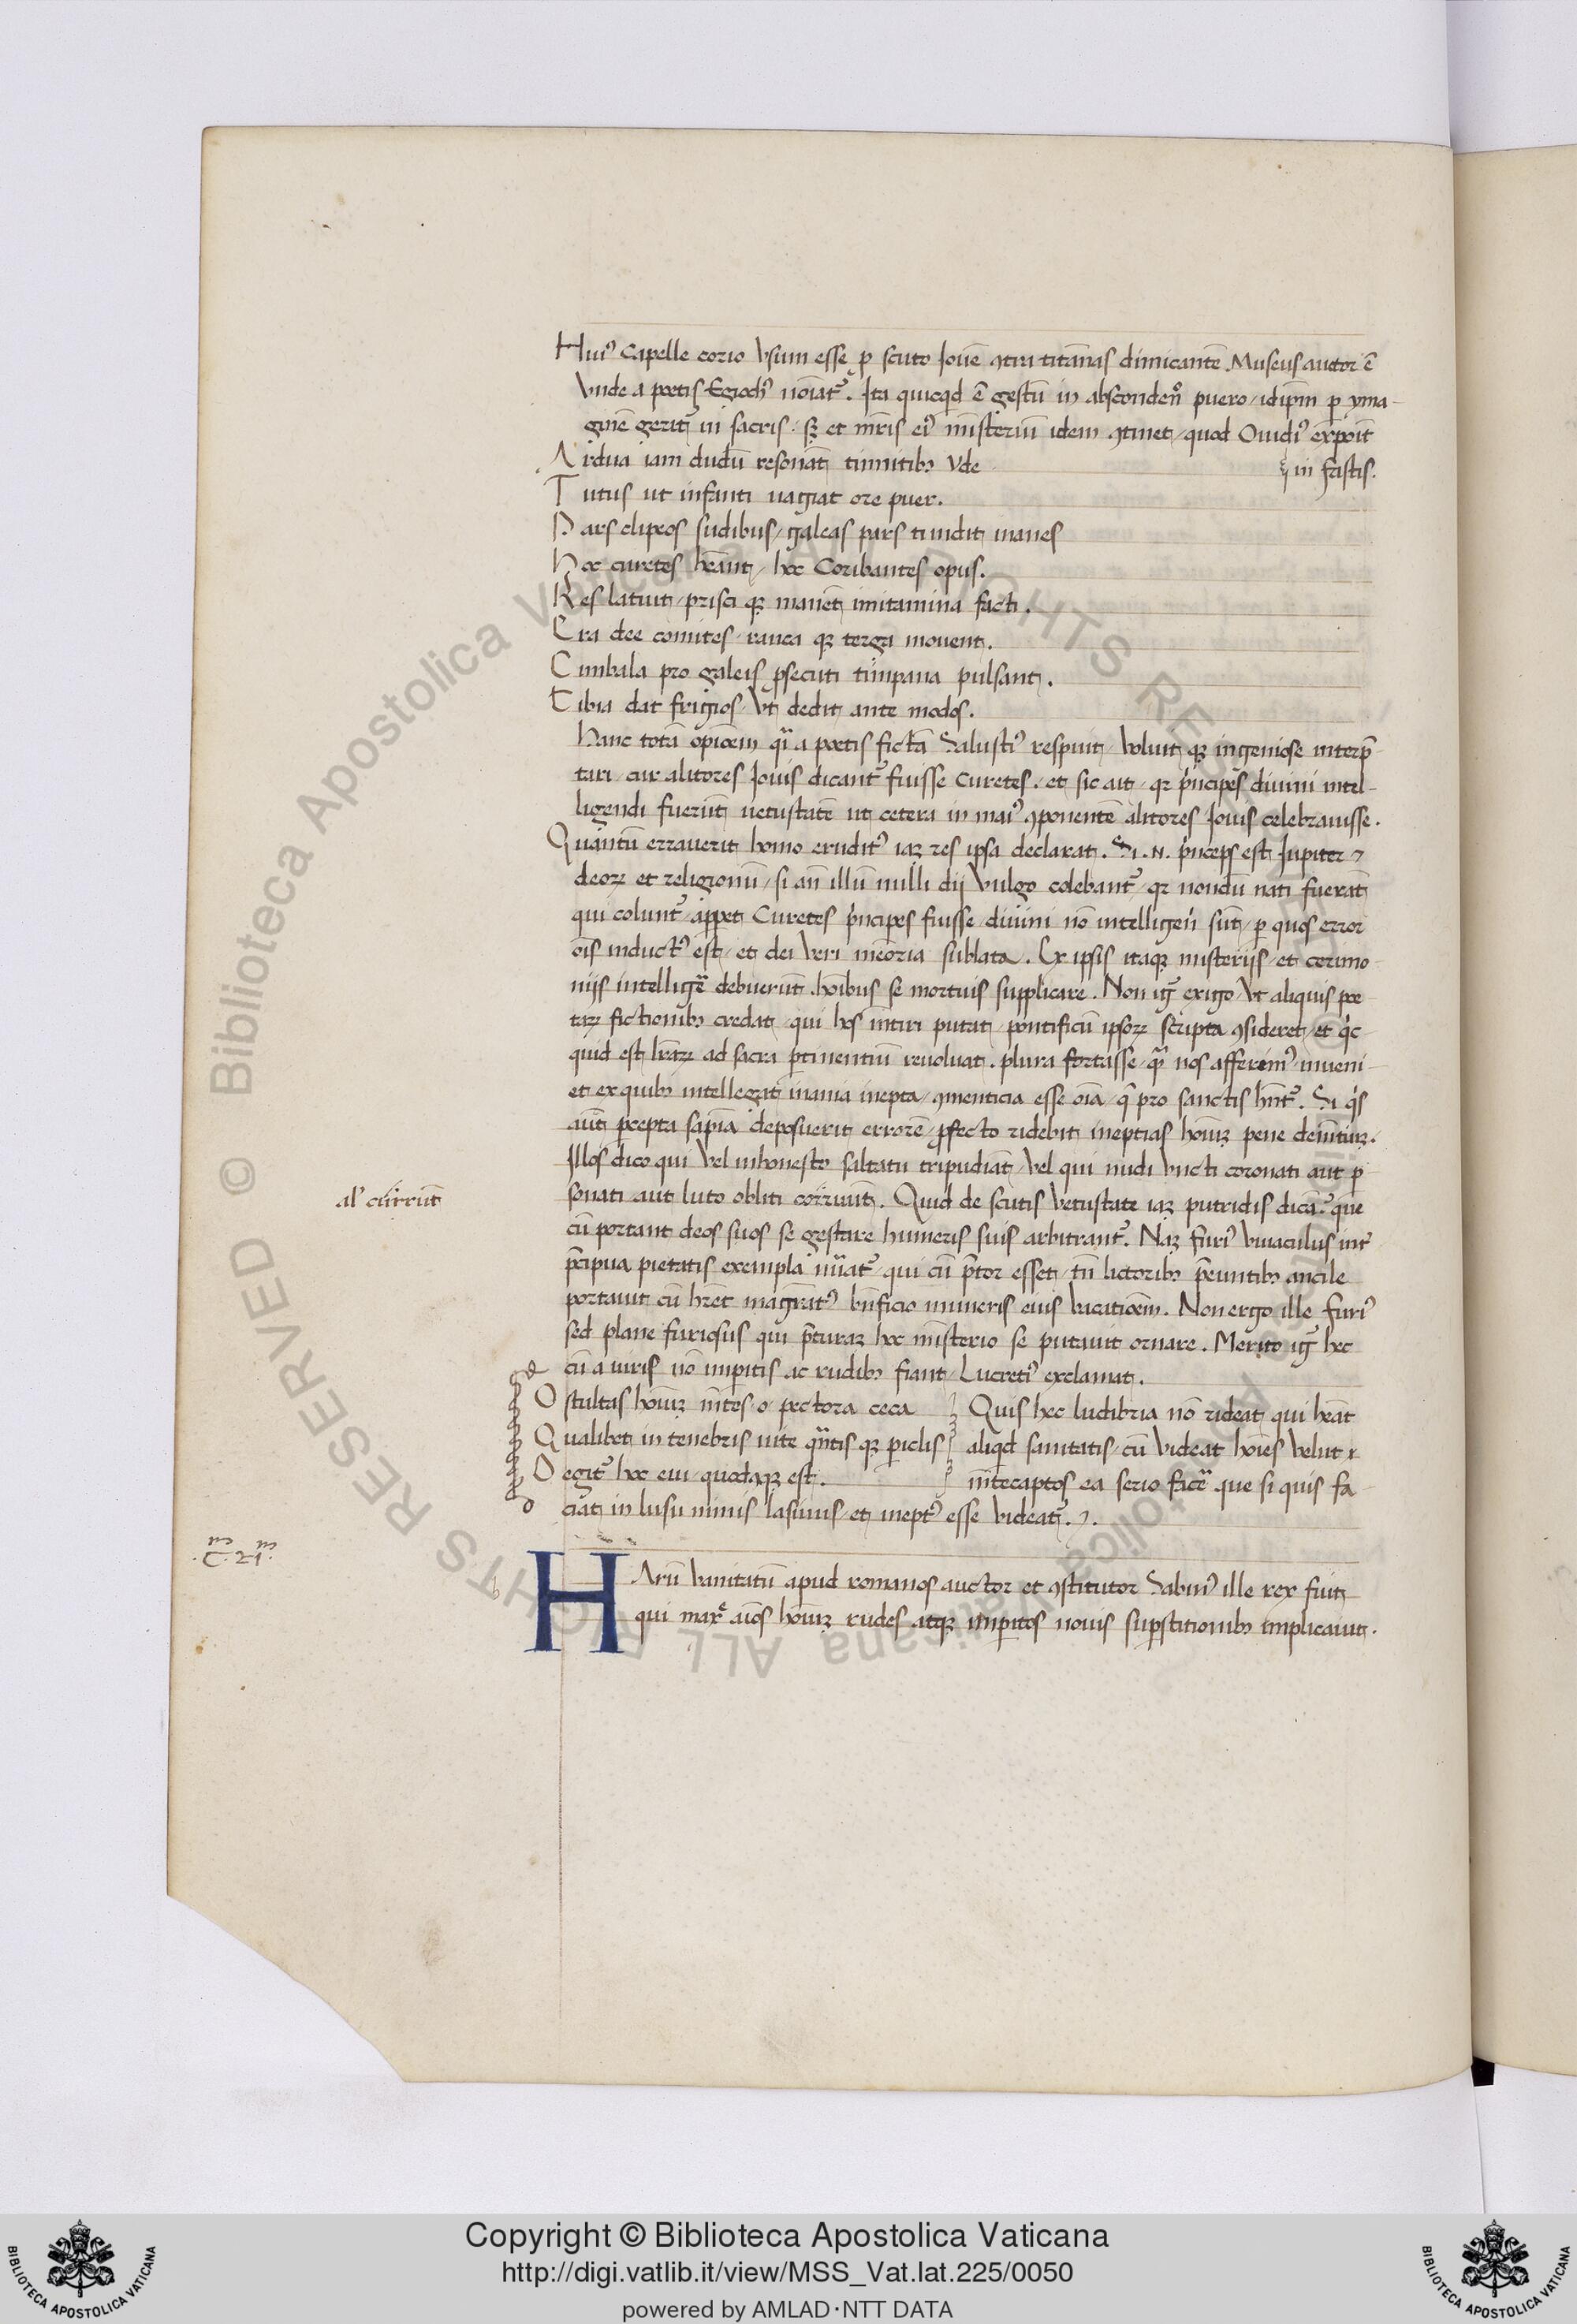 Huiꝰ Capelle corio Vsum esse ꝑ scuto Iouē ꝯtra titānas dimicantē. Museus autor ē
Vnde a poetis Egiochꝰ noīatꝰ. Ita quicqd ē gestū in absconden̄º puero idip̄m ꝑ yma-
ginē gerit in sacris. sꝫ et mr̄is eiꝰ misteriū idem ꝯtinet quod Ouidiꝰ exp̄oit
Ardua iam dudū resonāt tinnitibꝫ yde in fastis.
Tutus ut infanti uagiat ore puer.
Pars clipeos sudibus galeas pars tundit inanes
Hoc curetes hēant hoc Coribantes opus.
Res latuit prisci qꝫ manēt imitamina facti.
Era dee comites rauca qꝫ terga mouent.
Cimbala pro galeis ꝓscuti timpana pulsant.
Tibia dat frigios Vt dedit ante modos.
Hanc totā opioēm q̄i a poetis fictā Salustiꝰ respuit Voluit qꝫ ingeniose interp̄
tari cur alitores Iouis dicantꝰ fuisse Curetes. et sic ait qꝛ p̄ncipes diuini intel-
ligendi fuerūt uetustatē ut cetera in maiꝰ ꝯponentē alitores Iouis celebrauisse.
Quantū errauerit homo eruditꝰ iaꝫ res ipsa declarat. Si .N. p̄nceps est Iupiter ⁊
deoꝝ et religionū si an̄ illū nulli dij Vulgo colebantꝰ qꝛ nondū nati fuerāt
qui coluntꝰ appet Curetes p̄ncipes fuisse diuini nō intelligen̄i sūt ꝑ quos error
oīs inductꝰ est et dei Veri memoria sublata. Ex ipsis itaqꝫ misterijs et cerimo
nijs intelligē debuerūt hoībus se mortuis supplicare. Non igr̄ exigo Vt aliquis poe
taꝝ fictionibꝫ credat qui hos mītiri putat pontificū ipsoꝝ scripta ꝯsideret et qc
quid est lr̄aꝝ ad sacra ꝑtinentiū reuoluat. plura fortasse q̄ nos afferimꝰ inueni
et ex quibꝫ intellegat inania inepta ꝯmenticia esse oīa q̄ pro sanctis hn̄tꝰ. Si qs
aūt ꝑcepta sapīa deposuerit errorē ꝓfecto ridebit ineptias hoīuꝫ pene demītiuꝫ.
Illos dico qui Vel inhonesto saltatu tripudiāt Vel qui nudi Vncti coronati aut ꝑ
al' currūt
sonati aut luto obliti corruūt. Quid de scutis Vetustate iaꝫ putridis dicā. que
cū portant deos suos se gestare humeris suis arbitrantꝰ. Naꝫ furiꝰ Viuaculus int̄
p̄cipua pietatis exempla nūatꝰ qui cū p̄tor esset tn̄ lictoribꝫ p̄euntibꝫ ancile
portauit cū hr̄et magr̄atꝰ bn̄ficio muneris eius Vacatioēm. Non ergo ille Furiꝰ
sed plane furiosus qui p̄turaꝫ hoc misterio se putauit ornare. Merito igr̄ hec
cū a uiris nō imperitis ac rudibꝫ fiant Lucretiꝰ exclamat.
O stultas hoīuꝫ mētes o pectora ceca
Qualibet in tenebris uite qn̄tis qꝫ periclis
Degitꝰ hoc eui quodcqꝫ est.
Quis hec ludibria nō rideat qui hēat
aliqd sanitatis cū Videat hoīes Velut
mētecaptos ea serio facē que si quis fa
ciat in lusu nimis lasiuus et ineptꝰ esse Videatꝰ.
.C. 21.
Harū Vanitatū apud romanos auctor et ꝯstitutor Sabinꝰ ille rex fuit
qui maxe aīos hoīuꝫ rudes atqꝫ imperitos nouis suꝑstitionibꝫ implicauit.
Copyright © Biblioteca Apostolica Vaticana
http://digi.vatlib.it/view/MSS_Vat.lat.225/0050
powered by AMLAD·NTT DATA
BIBLIOTECA APOSTOLICA VATICANA
BIBLIOTECA APOSTOLICA VATICANA
© Biblioteca Apostolica Vaticana ALL RIGHTS RESERVED